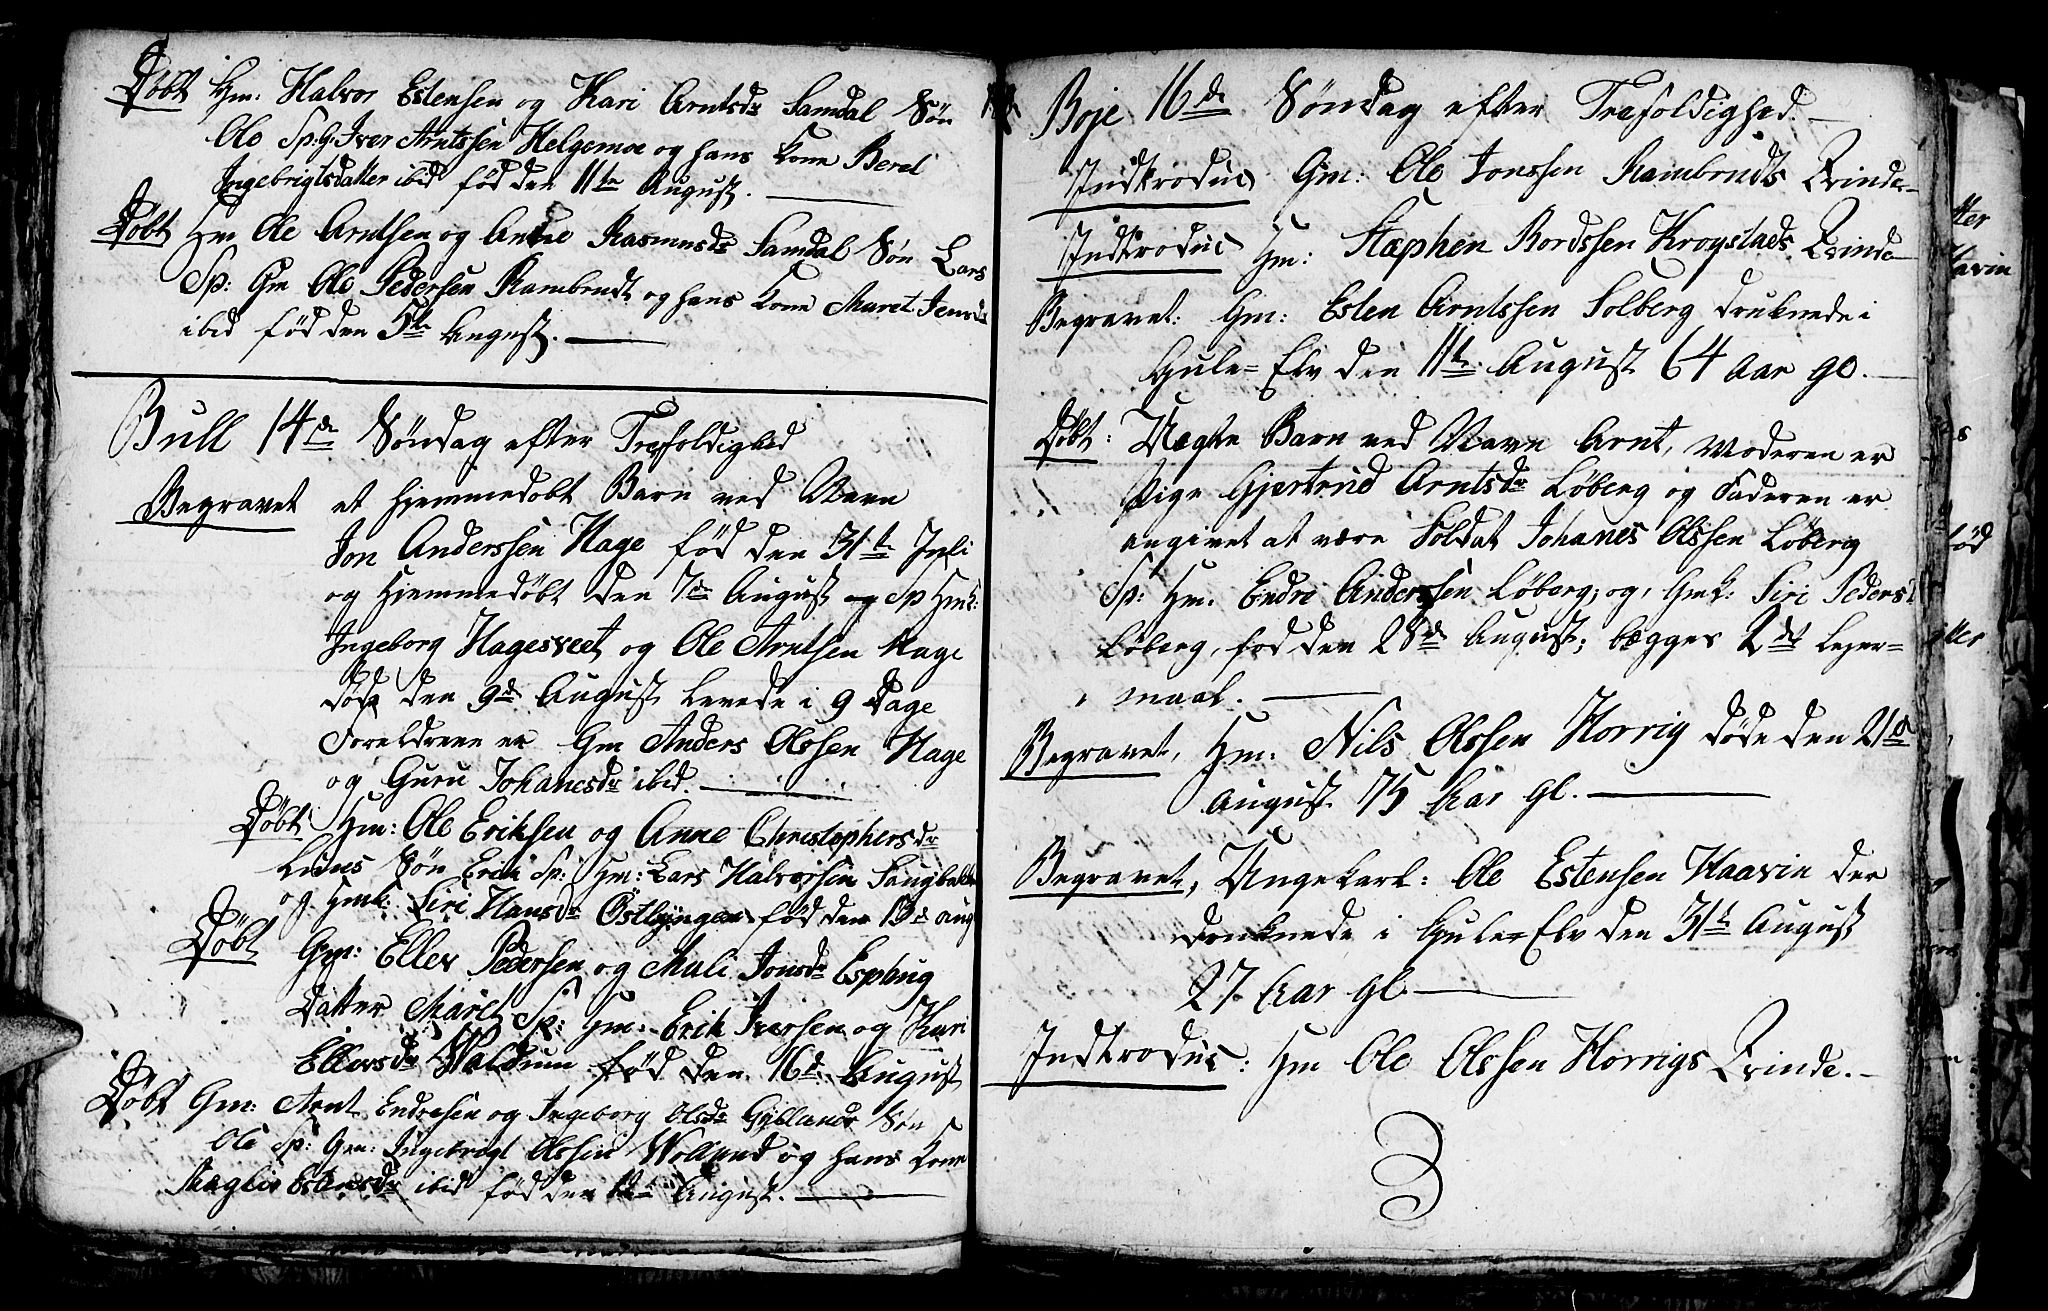 Døbt Gm: Halvor Estensen og Kari Arntsdr Samdal Søn
Ole Sp: G. Iver Arntssen Helgemoe og hans Kone Berel
Ingebrigtsdatter ibid fød den 11te August.
Døbt Hm Ole Arntsen og Anne Rasmusdr Samdal Søn Lars
Sp: Gm Ole Pedersen Rambredt og hans Kone Maret Jensdr
ibid fød den 5te August.
Bull 14de Søndag efter Trefoldighed
Begravet et hjemmedøbt Barn ved Navn
Jon Anderssen Hage fød den 31te Juli
og Hjemmedøbt den 7de August og Sp Hmk:
Ingeborg Hagesveet og Ole Arntsen Hage
døde den 9de August levede i 9 Dage
Foreldrene er Gm Anders Olssen Hage
og Guru Johanesdr ibid.
Døbt Hm: Ole Eriksen og Anne Christophersdr
Søn Erik Sp: Hm: Lars Halvorsen
og Hmk: Siri Hansdr Østlyngen fød den 13de Aug
Døbt Gm: Ellev Pedersen og Mali Jonsdr Esphug
Datter Maret Sp: Gm: Erik Iversen og Kari
Ellevsdr Woldum fød den 16de August
Døbt Gm: Arnt Endresen og Ingeborg Olsdr Gylland Søn
Ole Sp: Gm: Ingebrigt Olssen Wollund og hans Kone
Estensdr ibid fød den August.
Boje 16de Søndag efter Trefoldighed.
Indtroduc Gm: Ole Jonssen Rambredts Qvinde
Indtroduc Hm: Stæphen Bordssen Krogstads Qvinde
Begravet: Gm: Esten Arntssen Solberg druknede i
Gule=Elv den 11te August 64 Aar gl.
Døbt: Uægte Barn ved Navn Arnt, Moderen er
Pige Gjertrud Arntsdr Løberg og Faderen er
angivet at være Soldat Johanes Olssen Løberg
Sp: Hm. Endre Anderssen Løberg, og, Gmk: Siri Pedersd
Løberg, fød den 28de August; begges 2det Lejer=
maal.
Begravet, Hm: Nils Olssen Horrig døde den 21de
August 75 Aar gl.
Begravet, Ungekarl: Ole Estensen Haavin der
Druknede i Gule=Elv den 31te August
27 Aar gl.
Indtroduc: Hm Ole Olssen Horrigs Qvinde.